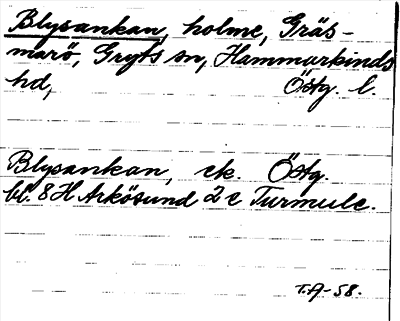 Blysankan, holme, Gräs-
marö, Gryts sn, Hammarkinds
hd, Östg. l.
Blysankan, ek. Östg.
bl. 8H Arkösund 2 c Turmulc.
T.A-58.